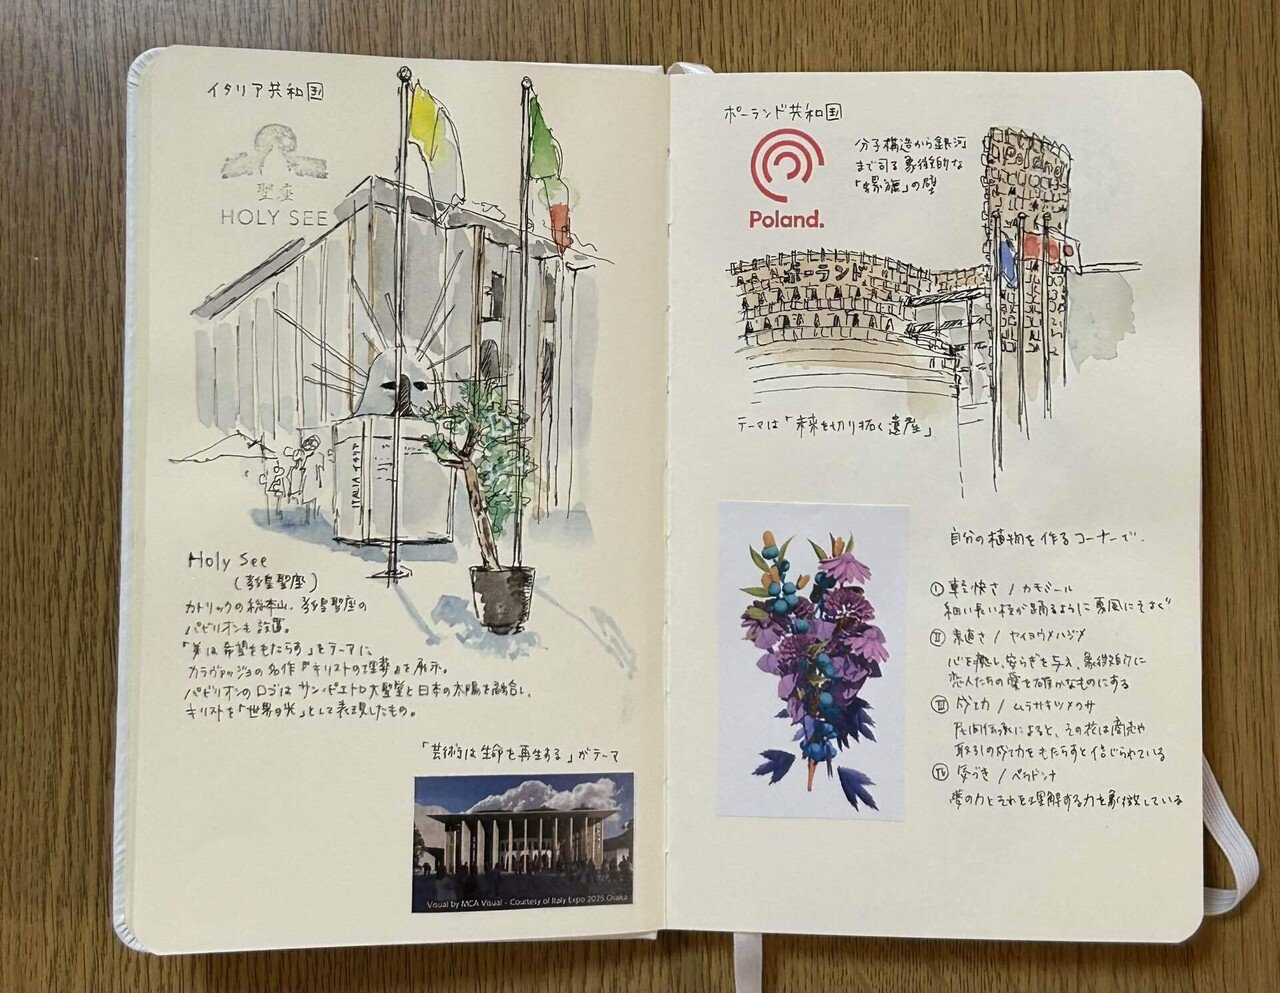 イタリア共和国
聖座
HOLY SEE
ITALIA
Holy See
(教皇聖座)
カトリックの総本山、教皇聖座の
パビリオンも設置。
「美は希望をもたらす」をテーマに
カラヴァッジョの名作『キリストの埋葬』を展示。
パビリオンのロゴは サン・ピエトロ大聖堂と日本の太陽を融合し、
キリストを「世界の光」として表現したもの。
「芸術は生命を再生する」がテーマ
Visual by MCA Visual - Courtesy of Italy Expo 2025 Osaka
ポーランド共和国
Poland.
分子構造から銀河
まで司る象徴的な
「螺旋」の壁
Poland
ポーランド
テーマは「未来を切り拓く遺産」
自分の植物を作るコーナーで、
① 軽快さ / カモミール
細い長い枝が踊るように夏風にそよぐ
Ⅱ 素直さ / セイヨウメハジメ
心を癒し、安らぎを与え、象徴的に
恋人たちの愛を確かなものにする
Ⅲ 成功 / ムラサキツメクサ
民間伝承によると、その花は商売や
取引の成功をもたらすと信じられている
Ⅳ
夢の力とそれを理解する力を象徴している